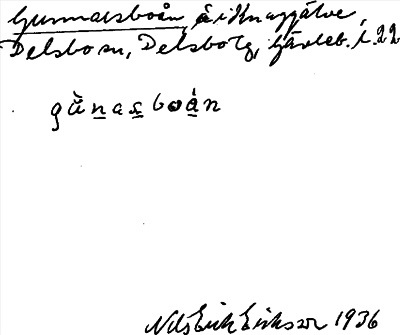 Gunnarsboån, å i Knaggälve,
Delsbo sn, Delsbo tg, Gävleb. l. 22
gùnasboán
Nils Erik Eriksson 1936